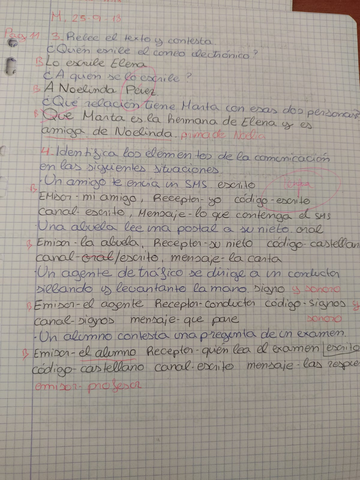 M. 25 9 13
Pág. 11 3. Relee el texto y contesta
¿Quién escribe el correo electrónico?
B Lo escribe Elena
¿A quién se lo escribe?
B A Noelinda Pérez
¿Qué relación tiene Marta con esas dos personas?
B Que Marta es la hermana de Elena y es
amiga de Noelinda.
4. Identifica los elementos de la comunicación
en las siguientes situaciones.
- Un amigo te envía un SMS escrito
Emisor - mi amigo, Receptor - yo código - escrito
canal - escrito, Mensaje - lo que contenga el SMS
Una abuela lee una postal a su nieto oral
Emison - la abuela, Receptor - su nieto código - castellan
canal - oral/escrito, mensaje - la carta
- Un agente de trafico se dirige a un conductor
silbando y levantanto la mano signo y sonoro
B Emison - el agente Receptor - conductor código - signos y
canal - signos mensaje - que pare sonoro
- Un alumno contesta una pregunta de un examen
B Emison - el alumno Receptor - quién lea el examen escrito
código - castellano canal - escrito mensaje - las respue
emisor - profesor